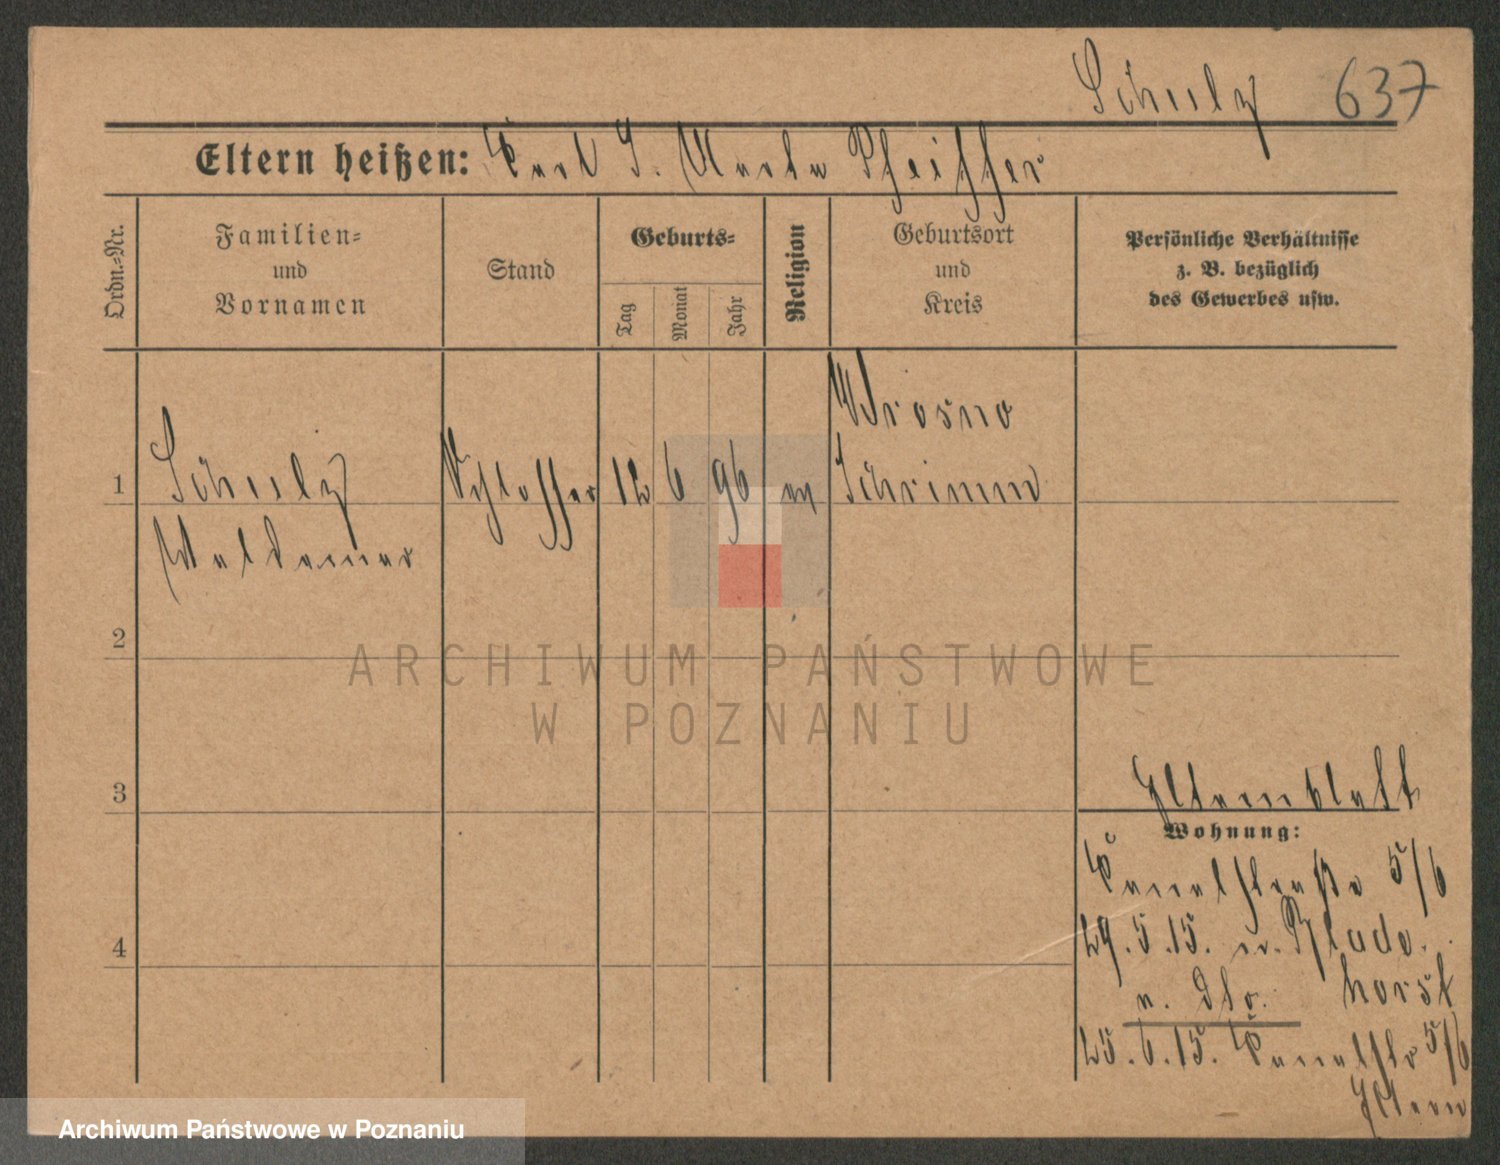 Schulz 637
Eltern heißen: Karl S. Marta Pfeiffer
Ordn.-Nr.
Familien-
und
Vornamen
Stand
Geburts-
Tag
Monat
Jahr
Religion
Geburtsort
und
Kreis
Persönliche Verhältnisse
z. B. bezüglich
des Gewerbes usw.
1 Schulz Schlosser 12 6 96 ev Schrimm
Waldemar
2
3
4
Elternblatt
Wohnung:
Kanalstraße 5/6
29.5.15. n.
horst
25.6.15. Kanalstr 5/6
Eltern
ARCHIWUM PAŃSTWOWE
W POZNANIU
Archiwum Państwowe w Poznaniu